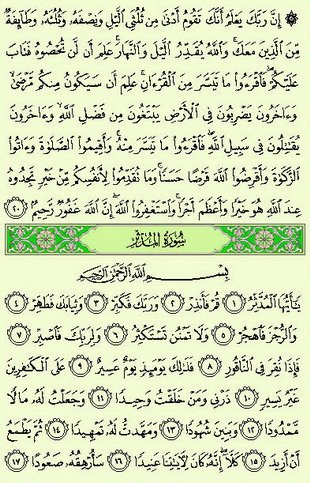 ۞ إِنَّ رَبَّكَ يَعْلَمُ أَنَّكَ تَقُومُ أَدْنَىٰ مِن ثُلُثَىِ ٱلَّيْلِ وَنِصْفَهُۥ وَثُلُثَهُۥ وَطَآئِفَةٌ
مِّنَ ٱلَّذِينَ مَعَكَ ۚ وَٱللَّهُ يُقَدِّرُ ٱلَّيْلَ وَٱلنَّهَارَ ۚ عَلِمَ أَن لَّن تُحْصُوهُ فَتَابَ
عَلَيْكُمْ ۖ فَٱقْرَءُوا۟ مَا تَيَسَّرَ مِنَ ٱلْقُرْءَانِ ۚ عَلِمَ أَن سَيَكُونُ مِنكُم مَّرْضَىٰ ۙ
وَءَاخَرُونَ يَضْرِبُونَ فِى ٱلْأَرْضِ يَبْتَغُونَ مِن فَضْلِ ٱللَّهِ ۙ وَءَاخَرُونَ
يُقَٰتِلُونَ فِى سَبِيلِ ٱللَّهِ ۖ فَٱقْرَءُوا۟ مَا تَيَسَّرَ مِنْهُ ۚ وَأَقِيمُوا۟ ٱلصَّلَوٰةَ وَءَاتُوا۟
ٱلزَّكَوٰةَ وَأَقْرِضُوا۟ ٱللَّهَ قَرْضًا حَسَنًا ۚ وَمَا تُقَدِّمُوا۟ لِأَنفُسِكُم مِّنْ خَيْرٍ تَجِدُوهُ
عِندَ ٱللَّهِ هُوَ خَيْرًا وَأَعْظَمَ أَجْرًا ۚ وَٱسْتَغْفِرُوا۟ ٱللَّهَ ۖ إِنَّ ٱللَّهَ غَفُورٌ رَّحِيمٌۢ ٢٠
سُورَةُ المُدَّثِّرِ
بِسْمِ ٱللَّهِ ٱلرَّحْمَٰنِ ٱلرَّحِيمِ
يَٰٓأَيُّهَا ٱلْمُدَّثِّرُ ١ قُمْ فَأَنذِرْ ٢ وَرَبَّكَ فَكَبِّرْ ٣ وَثِيَابَكَ فَطَهِّرْ ٤
وَٱلرُّجْزَ فَٱهْجُرْ ٥ وَلَا تَمْنُن تَسْتَكْثِرُ ٦ وَلِرَبِّكَ فَٱصْبِرْ ٧
فَإِذَا نُقِرَ فِى ٱلنَّاقُورِ ٨ فَذَٰلِكَ يَوْمَئِذٍ يَوْمٌ عَسِيرٌ ٩ عَلَى ٱلْكَٰفِرِينَ
غَيْرُ يَسِيرٍ ١٠ ذَرْنِى وَمَنْ خَلَقْتُ وَحِيدًا ١١ وَجَعَلْتُ لَهُۥ مَالًا
مَّمْدُودًا ١٢ وَبَنِينَ شُهُودًا ١٣ وَمَهَّدتُّ لَهُۥ تَمْهِيدًا ١٤ ثُمَّ يَطْمَعُ
أَنْ أَزِيدَ ١٥ كَلَّآ ۖ إِنَّهُۥ كَانَ لِءَايَٰتِنَا عَنِيدًا ١٦ سَأُرْهِقُهُۥ صَعُودًا ١٧